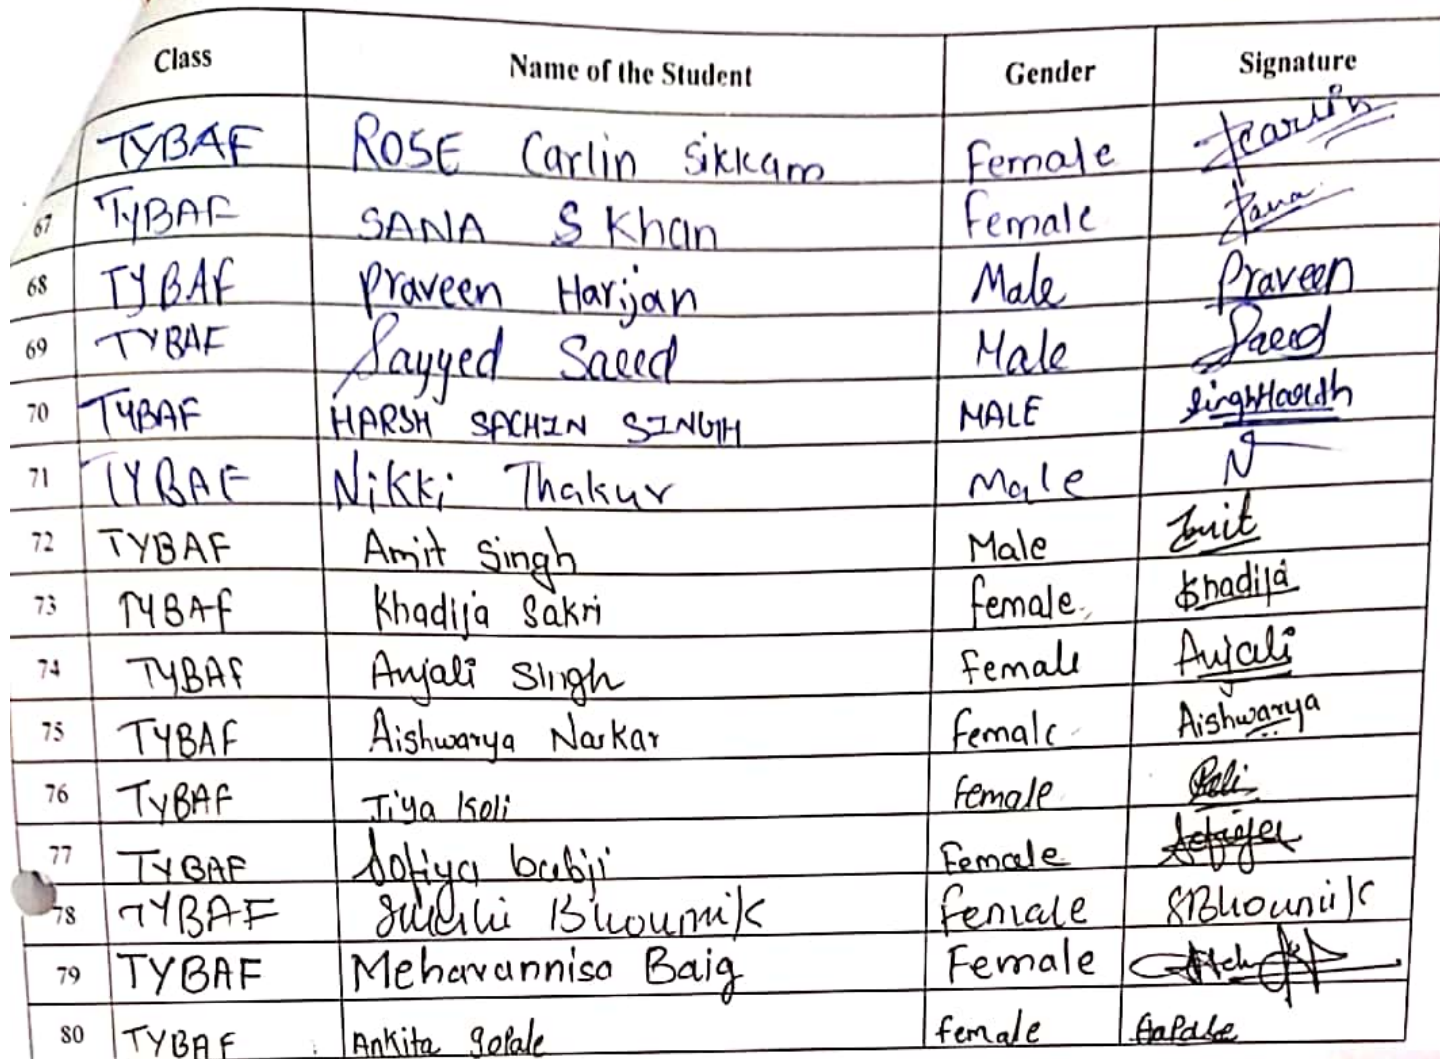 Class Name of the Student Gender Signature
TYBAF ROSE Carlin Sikkam Female Carlin
67 TYBAF SANA S Khan Female Sana
68 TYBAF Praveen Harijan Male Praveen
69 TYBAF Sayyed Saeed Male Saeed
70 TYBAF HARSH SACHIN SINGH MALE SinghHarsh
71 TYBAF Nikki Thakur Male N
72 TYBAF Amit Singh Male Amit
73 TYBAF Khadija Sakri female Khadija
74 TYBAF Anjali Singh female Anjali
75 TYBAF Aishwarya Narkar female Aishwarya
76 TYBAF Jiya Koli female Koli
77 TYBAF Sofiya babji Female Sofiya
78 TYBAF Bhoumik female SBhoumik
79 TYBAF Meharannisa Baig Female
80 TYBAF Ankita gopale female